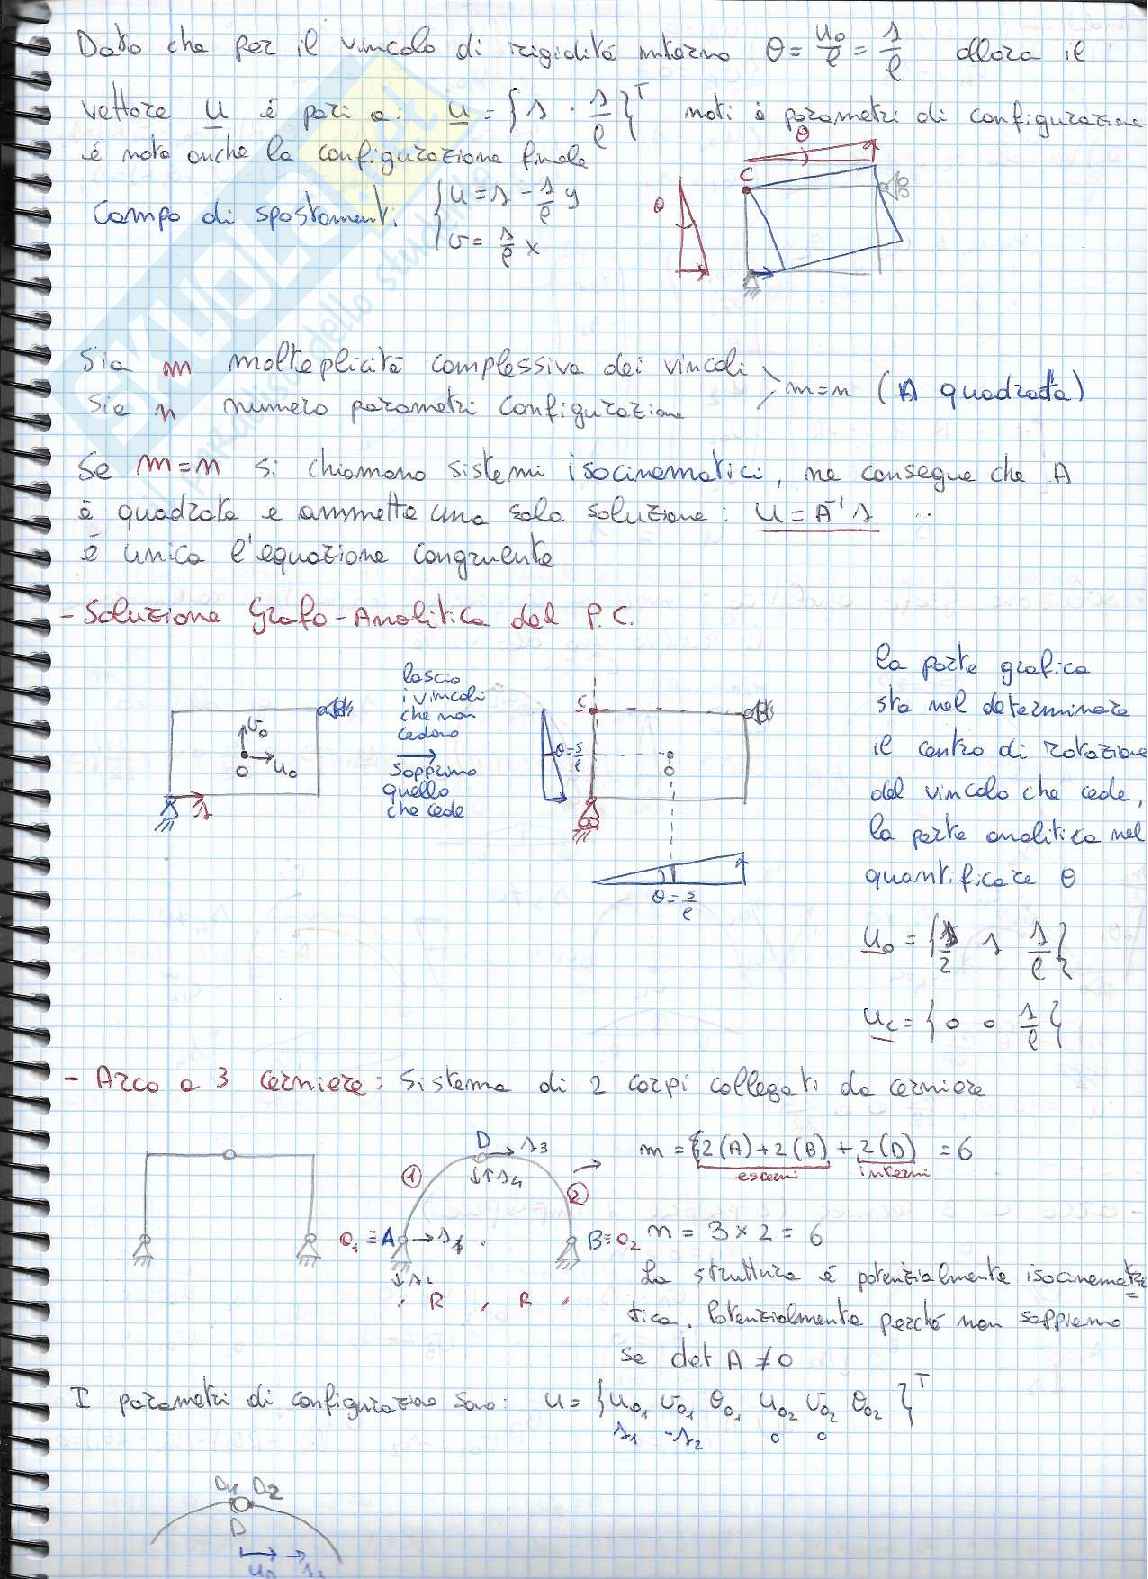 Dato che per il vincolo di rigidità interno θ = u₀/l = s/l allora il
vettore u è pari a: u = {s · s/l}ᵀ noti i parametri di configurazione
è nota anche la configurazione finale
Campo di spostamenti: {u = s - s/l y
{v = s/l x
θ
C
B
θ
Sia m molteplicità complessiva dei vincoli
Sia n numero parametri configurazione
> m=n (A quadrata)
Se m=n si chiamano sistemi isocinematici, ne consegue che A
è quadrata e ammette una sola soluzione: u = A⁻¹ s
è unica l'equazione congruente
- Soluzione Grafo-Analitica del P.C.
lascio
i vincoli
che non
cedono
sopprimo
quello
che cede
v₀
u₀
O
s
B
C
θ=s/l
O
B
θ=s/l
la parte grafica
sta nel determinare
il centro di rotazione
del vincolo che cede,
la parte analitica nel
quantificare θ
u₀ = {s/2 s s/l}
u_c = {0 0 s/l}
- Arco a 3 cerniere: Sistema di 2 corpi collegati da cerniere
D s₃
s₄
1
2
O₁ ≡ A s₁
B≡O₂
s₂
R R
m = {2(A)+2(B)+2(D) = 6
esterni interni
n = 3 × 2 = 6
La struttura è potenzialmente isocinema
tica. Potenzialmente perché non sappiamo
se det A ≠ 0
I parametri di configurazione sono: u = {u₀₁ v₀₁ θ₀₁ u₀₂ v₀₂ θ₀₂}ᵀ
s₁ -s₂ 0 0
D₁ D₂
D
u_D